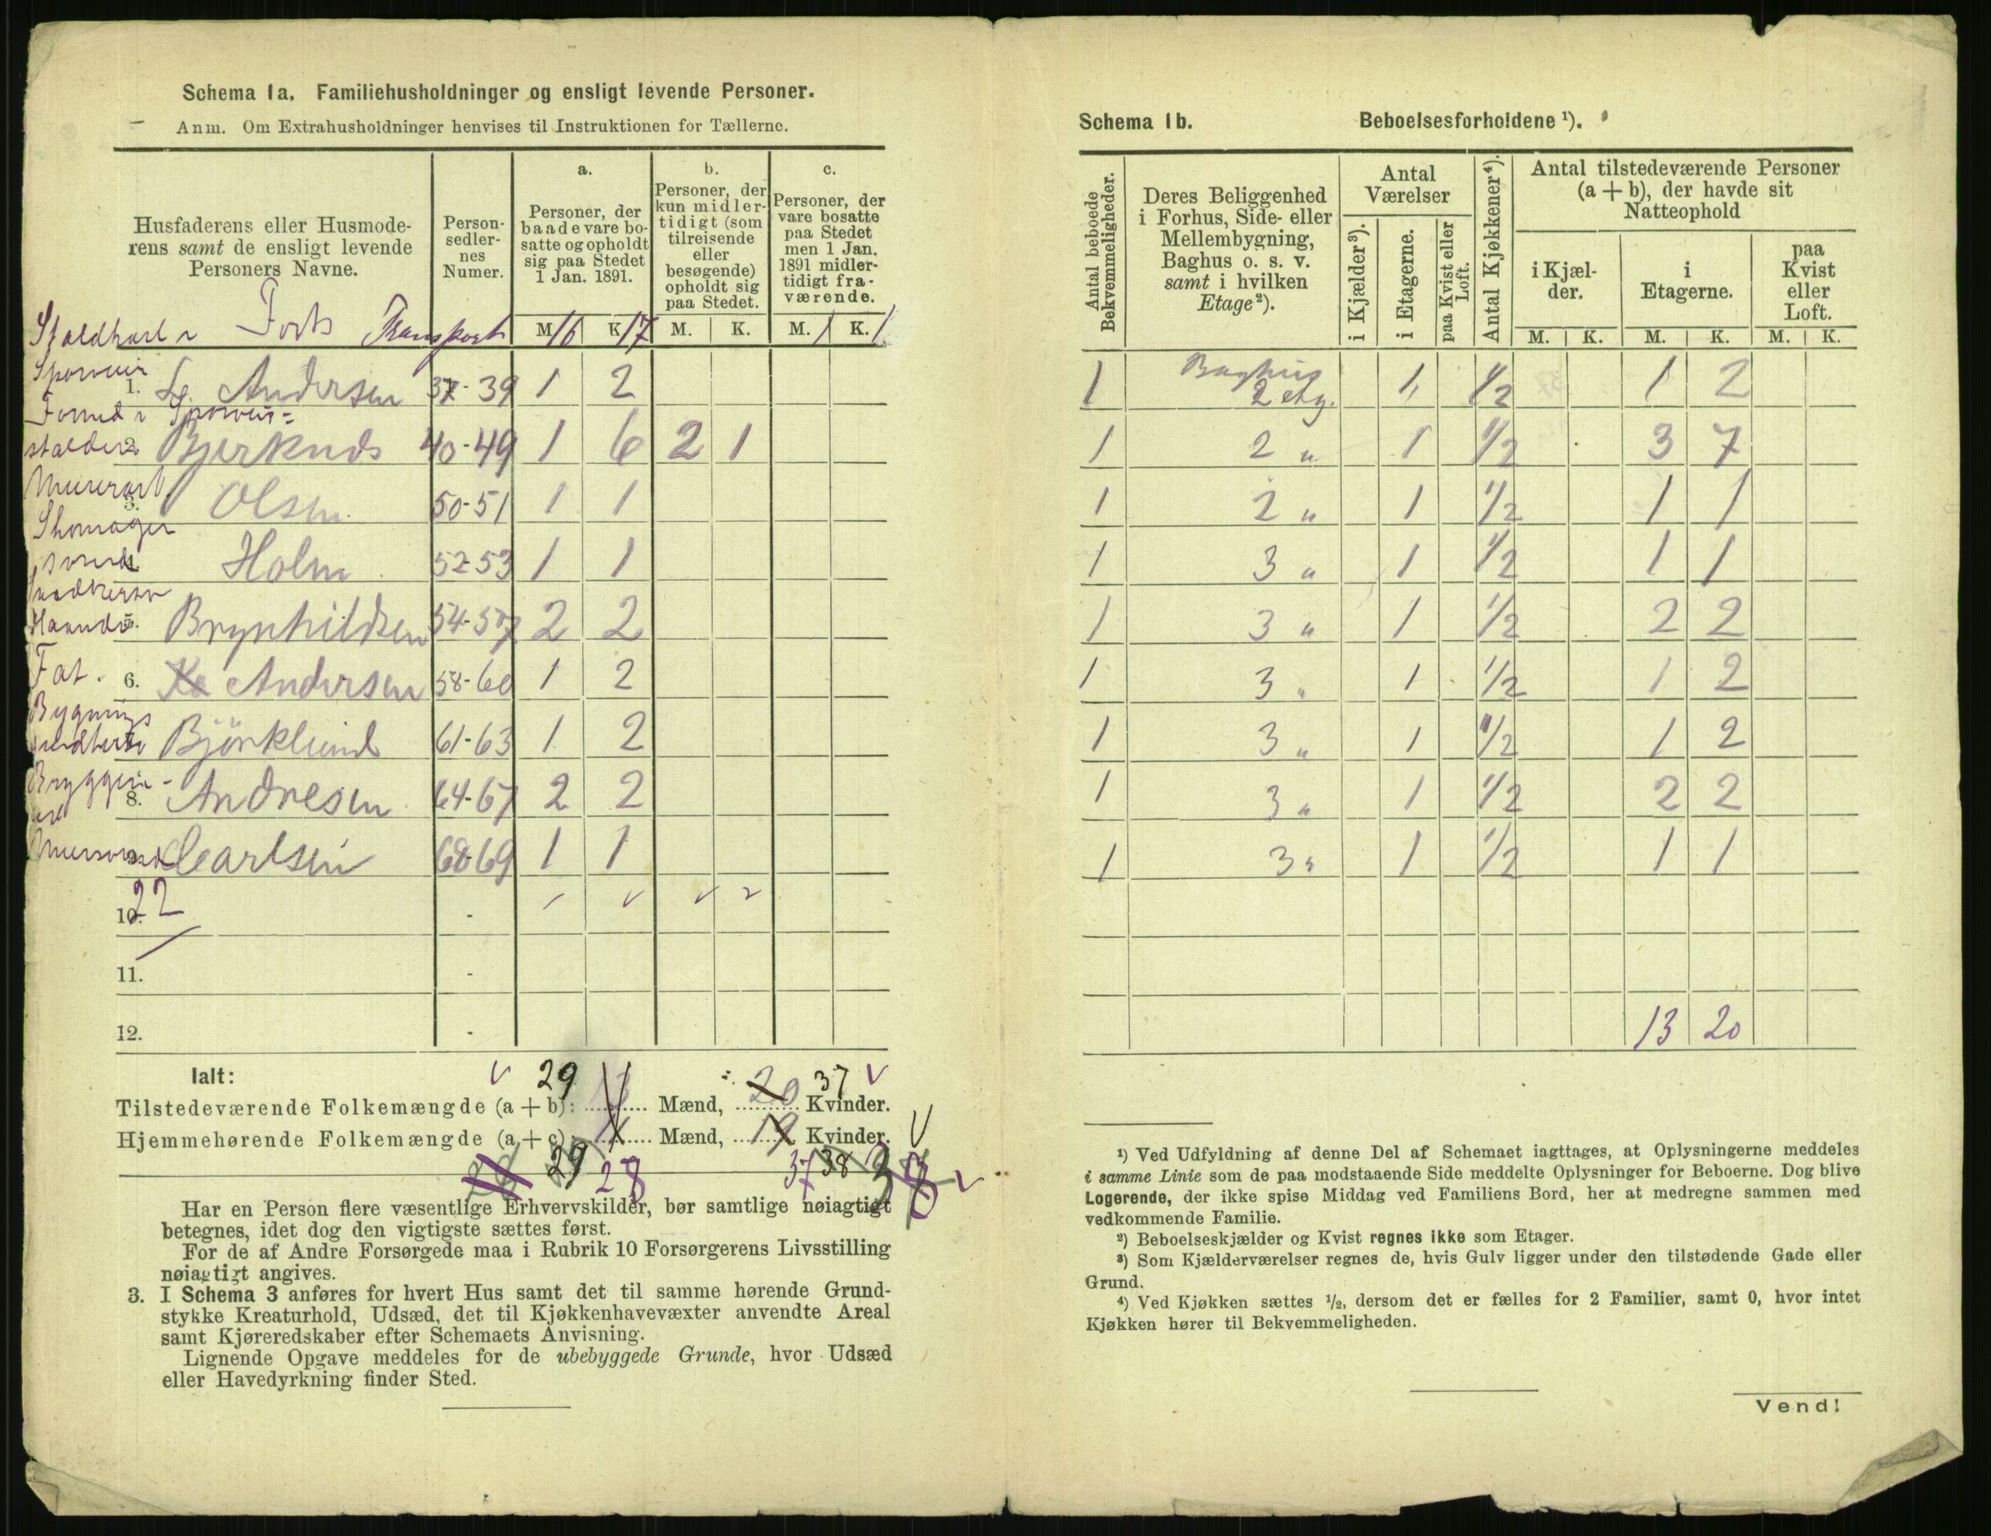 Schema 1a. Familiehusholdninger og ensligt levende Personer.
Anm. Om Extrahusholdninger henvises til Instruktionen for Tællerne.
Husfaderens eller Husmode-
rens samt de ensligt levende
Personers Navne.
Person-
sedler-
nes
Numer.
a.
Personer, der
baade vare bo-
satte og opholdt
sig paa Stedet
1 Jan. 1891.
b.
Personer, der
kun midler-
tidigt (som
tilreisende
eller
besøgende)
opholdt sig
paa Stedet.
c.
Personer, der
vare bosatte
paa Stedet
men 1 Jan.
1891 midler-
tidigt fra-
værende.
Forts Transport M. 16 K. 17 M. K. M. 1 K. 1
Sporveis
1. L. Andersen 37-39 1 2
2. Bjerknds 40-49 1 6 2 1
3. Olsen 50-51 1 1
Skomager
Holm 52-53 1 1
5. Brynhildsen 54-57 2 2
Fat.
6. Andersen 58-60 1 2
Bygnings
Björklund 61-63 1 2
8. Andresen 64-67 2 2
Carlsen 68-69 1 1
10. 22 -
11. -
12. -
Ialt:
Tilstedeværende Folkemængde (a+b): 29 13 Mænd, 20 37 Kvinder.
Hjemmehørende Folkemængde (a+c): 11 Mænd, 19 Kvinder.
29 28 37 38 38
Har en Person flere væsentlige Erhvervskilder, bør samtlige nøiagtigt
betegnes, idet dog den vigtigste sættes først.
For de af Andre Forsørgede maa i Rubrik 10 Forsørgerens Livsstilling
nøiagtigt angives.
3. I Schema 3 anføres for hvert Hus samt det til samme hørende Grund-
stykke Kreaturhold, Udsæd, det til Kjøkkenhavevæxter anvendte Areal
samt Kjøreredskaber efter Schemaets Anvisning.
Lignende Opgave meddeles for de ubebyggede Grunde, hvor Udsæd
eller Havedyrkning finder Sted.
Schema 1b. Beboelsesforholdene ¹).
Antal beboede
Bekvemmeligheder.
Deres Beliggenhed
i Forhus, Side- eller
Mellembygning,
Baghus o. s. v.
samt i hvilken
Etage²).
Antal
Værelser
i Kjælder³).
i Etagerne.
paa Kvist eller
Loft.
Antal Kjøkkener⁴).
Antal tilstedeværende Personer
(a+b), der havde sit
Natteophold
i Kjæl-
der.
i
Etagerne.
paa
Kvist
eller
Loft.
M. K. M. K. M. K.
Baghus
1 2 etg. 1 1/2 1 2
1 2 " 1 1/2 3 7
1 2 " 1 1/2 1 1
1 3 " 1 1/2 1 1
1 3 " 1 1/2 2 2
1 3 " 1 1/2 1 2
1 3 " 1 1/2 1 2
1 3 " 1 1/2 2 2
1 3 " 1 1/2 1 1
13 20
¹) Ved Udfyldning af denne Del af Schemaet iagttages, at Oplysningerne meddeles
i samme Linie som de paa modstaaende Side meddelte Oplysninger for Beboerne. Dog blive
Logerende, der ikke spise Middag ved Familiens Bord, her at medregne sammen med
vedkommende Familie.
²) Beboelseskjælder og Kvist regnes ikke som Etager.
³) Som Kjælderværelser regnes de, hvis Gulv ligger under den tilstødende Gade eller
Grund.
⁴) Ved Kjøkken sættes ½, dersom det er fælles for 2 Familier, samt 0, hvor intet
Kjøkken hører til Bekvemmeligheden.
Vend!